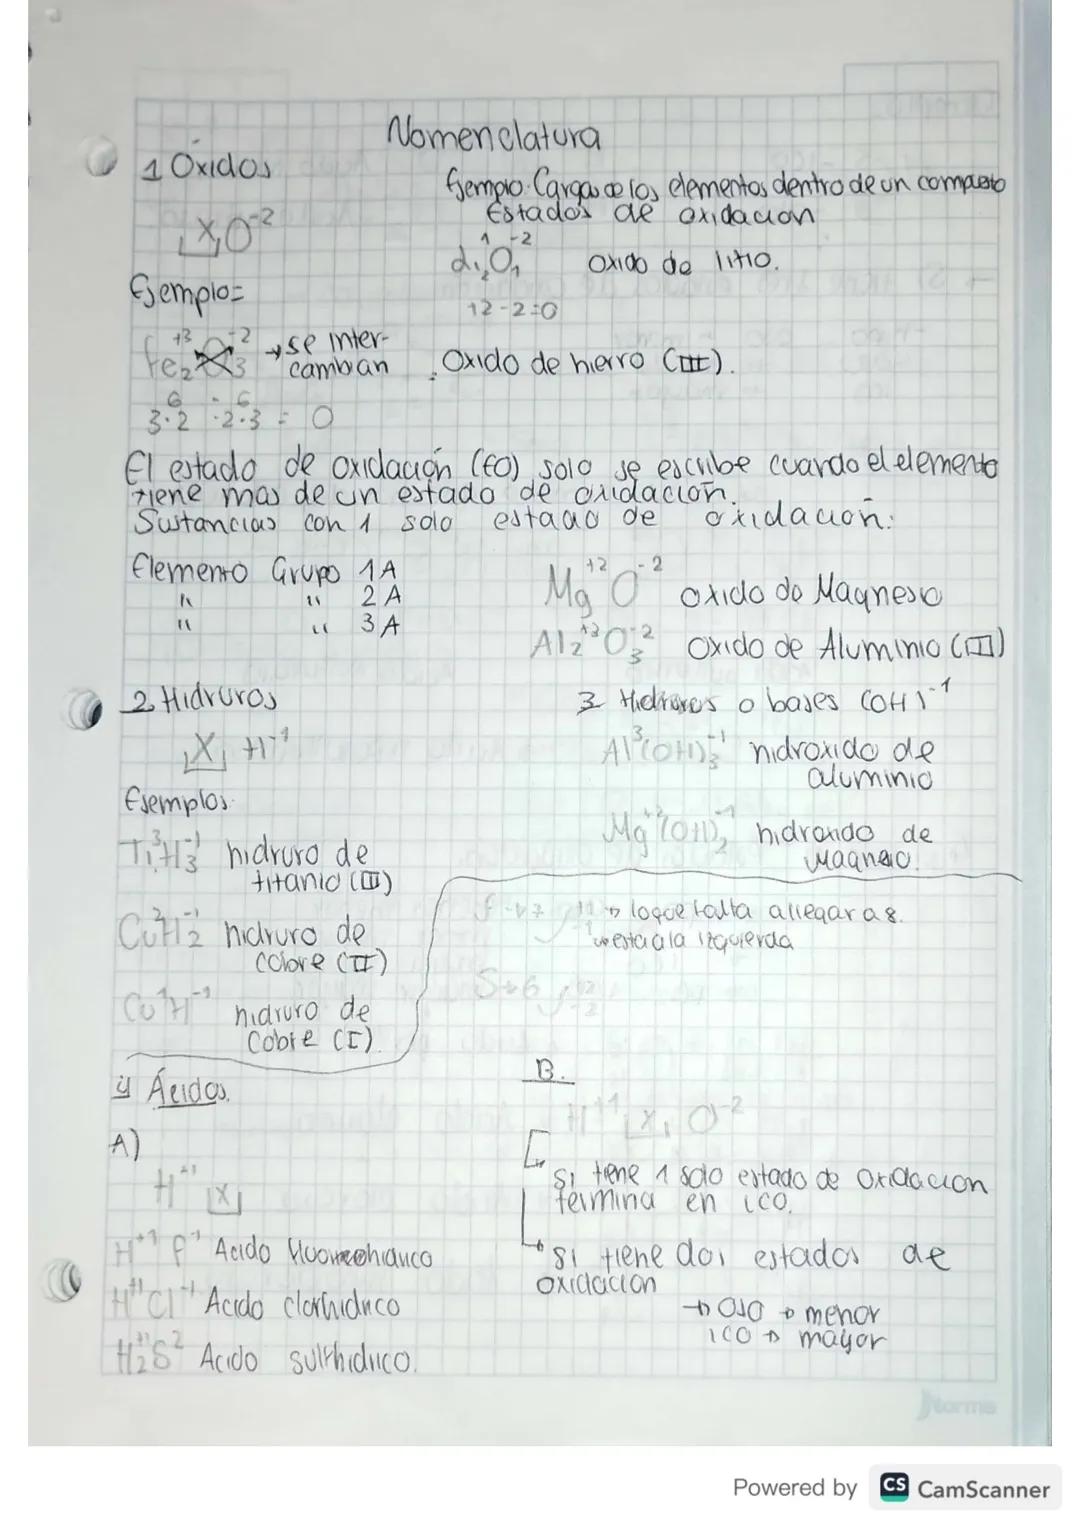 Nomenclatura
1 Óxidos
X O⁻²
Ejemplo: Cargas de los elementos dentro de un compuesto
Estados de oxidación
Li₂¹O₁⁻² oxido de litio.
+2-2=0
Ejemplo=
Fe₂⁺³O₃⁻² → se inter-
cambian
Oxido de hierro (III).
6 - 6
3·2 -2·3 = 0
El estado de oxidación (EO) solo se escribe cuando el elemento
tiene mas de un estado de oxidación.
Sustancias con 1 solo estado de oxidacion:
Elemento Grupo 1A
" " 2A
" " 3A
Mg⁺²O⁻² oxido de Magnesio
Al₂⁺³O₃⁻² oxido de Aluminio (III)
2 Hidruros
X H⁻¹
Ejemplos
Ti³H₃⁻¹ hidruro de
titanio (III)
Cu²H₂⁻¹ hidruro de
cobre (II)
Cu¹H⁻¹ hidruro de
Cobre (I).
3 o bases (OH)⁻¹
Al³(OH)₃⁻¹ hidroxido de
aluminio
Mg⁺²(OH)₂⁻¹ hidroxido de
Magnesio.
F → 7 → lo que falta allegar a 8.
esta a la izquierda
S → 6
4 Ácidos.
A)
H⁺¹ X
H⁺¹F⁻¹ Acido
H⁺¹Cl⁻¹ Acido clorhidrico
H₂⁺¹S² Acido sulfhidrico.
B.
H⁺¹ X O⁻²
si tiene 1 solo estado de oxidacion
termina en ico.
si tiene dos estados de
oxidacion
→ oso → menor
ico → mayor
Norma
Powered by CS CamScanner